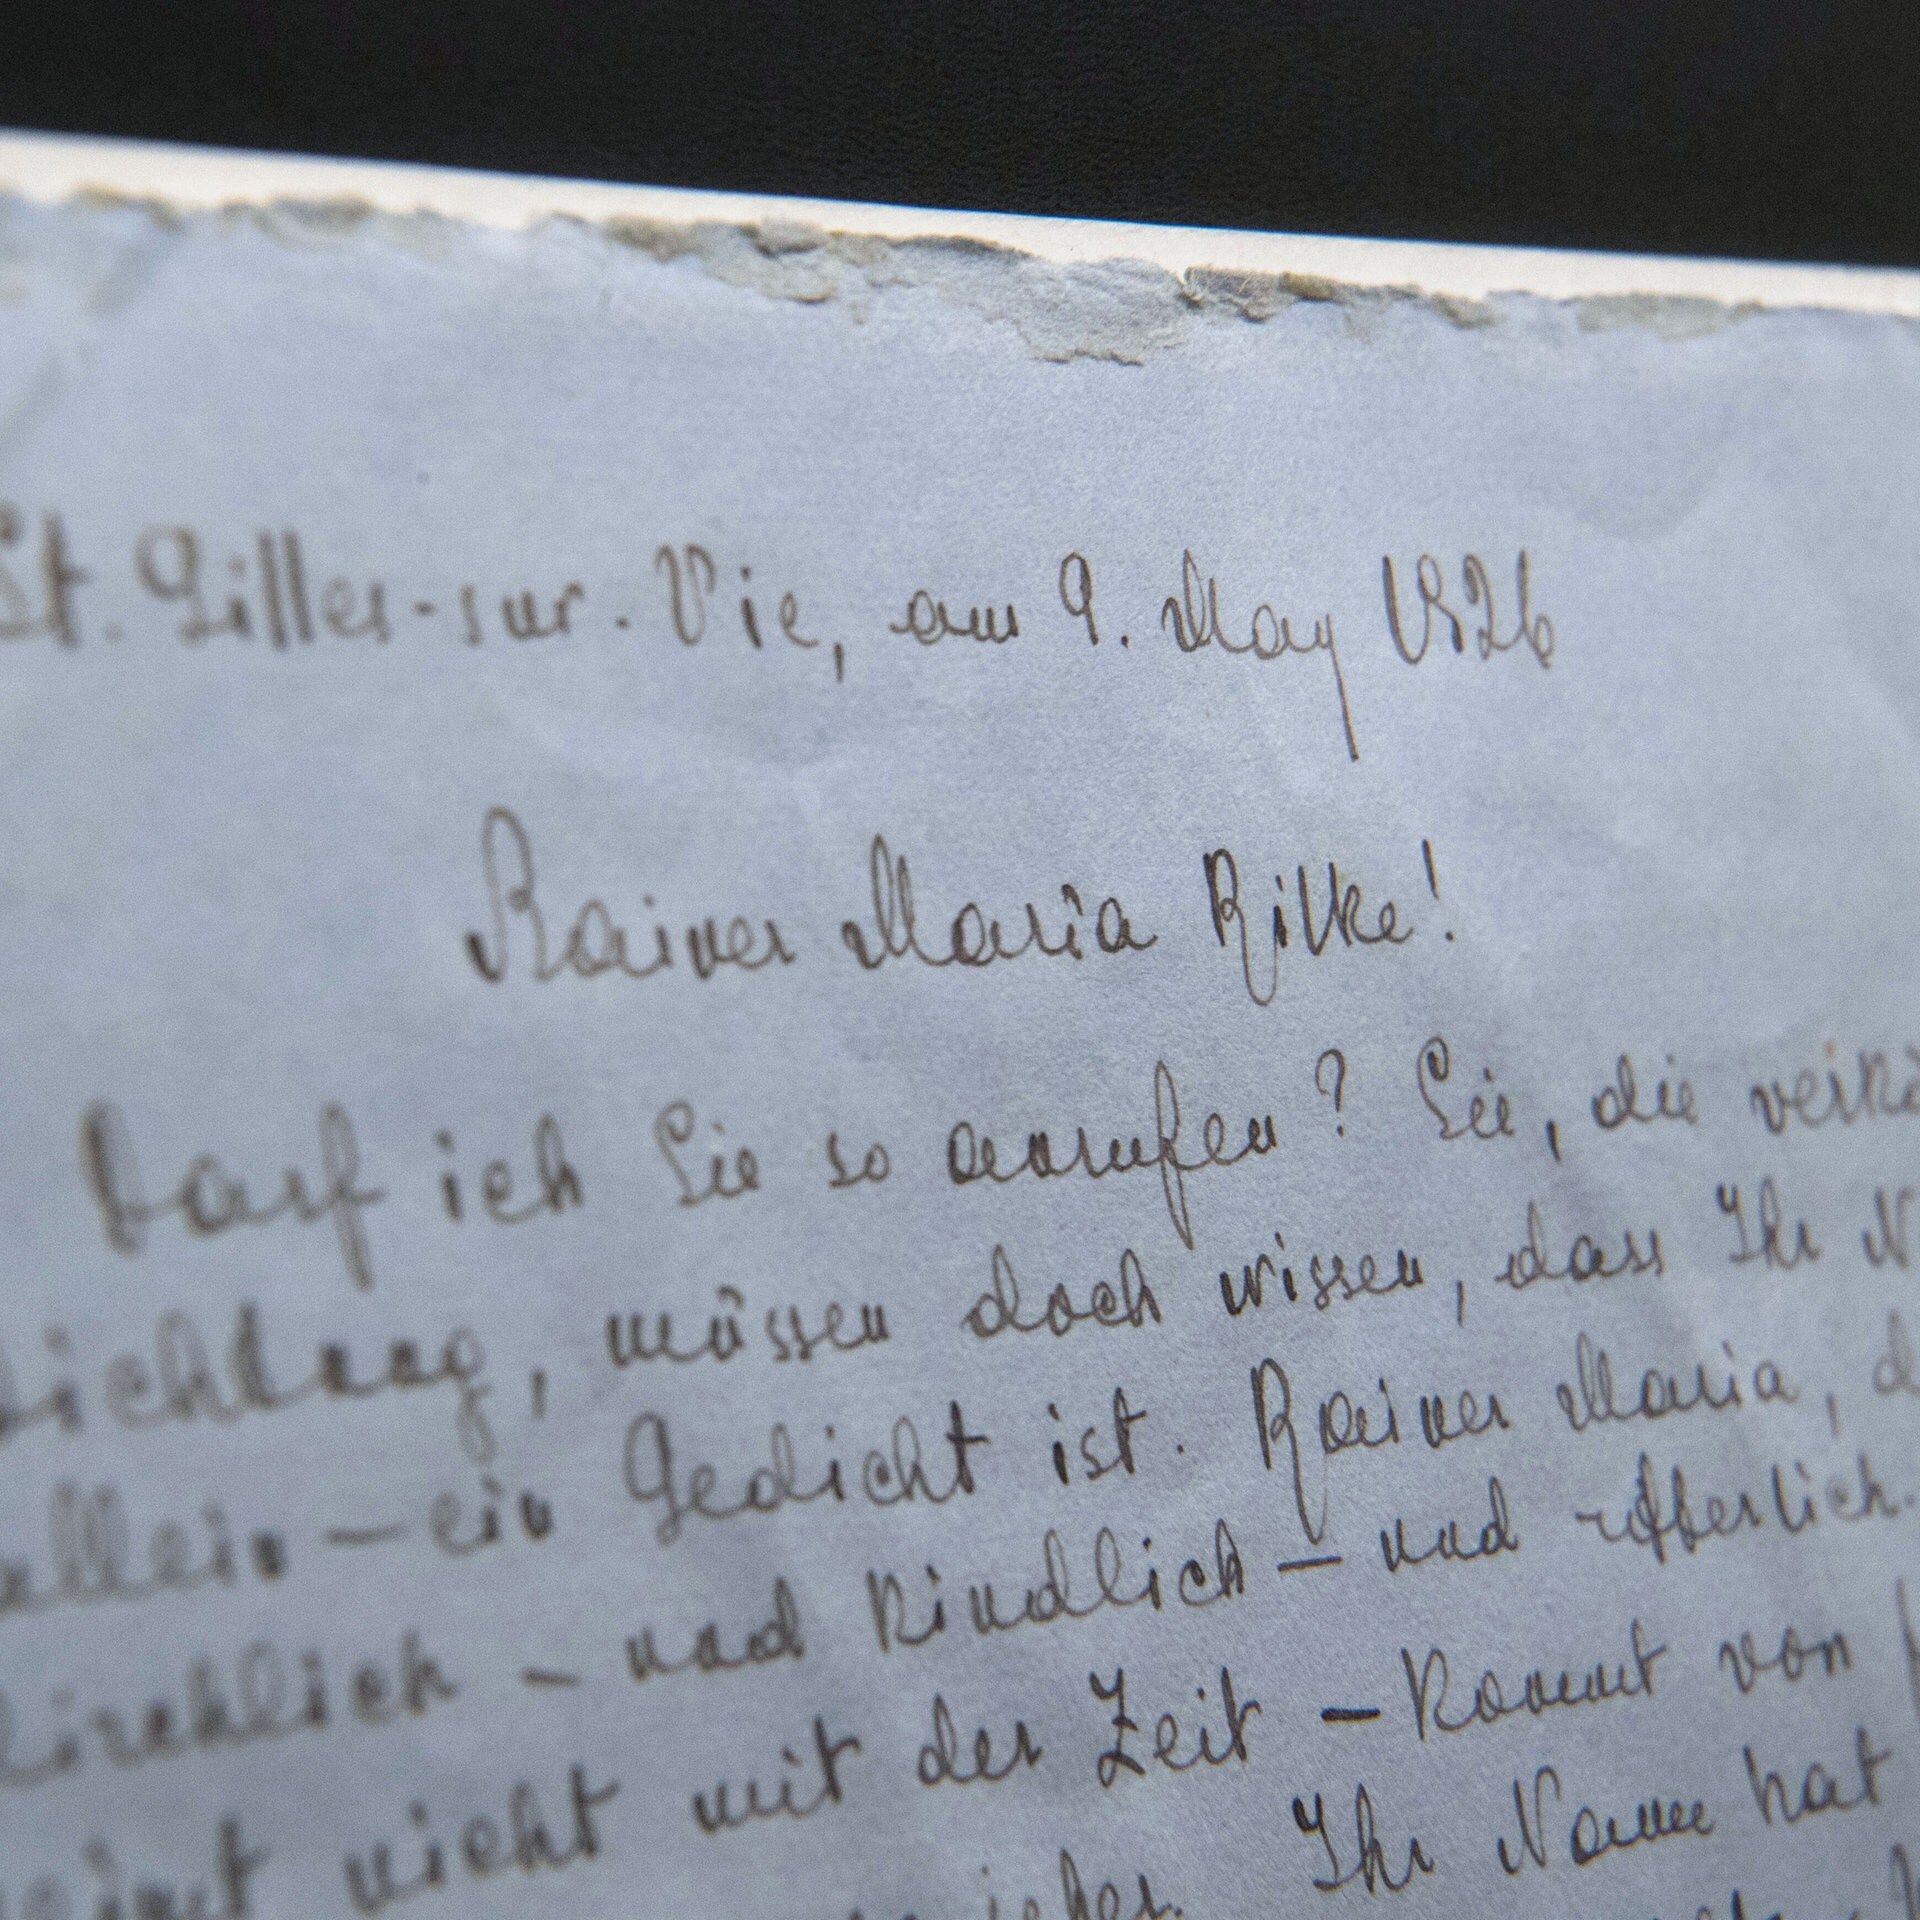 St. Gilles-sur-Vie, am 9. May 1926
Rainer Maria Rilke!
Darf ich Sie so anrufen? Sie, die verkö
Dichtung, müssen doch wissen, dass Ihr N
allein – ein Gedicht ist. Rainer Maria, d
kirchlich – und kindlich – und ritterlich.
reimt nicht mit der Zeit – kommt von
Ihr Name hat